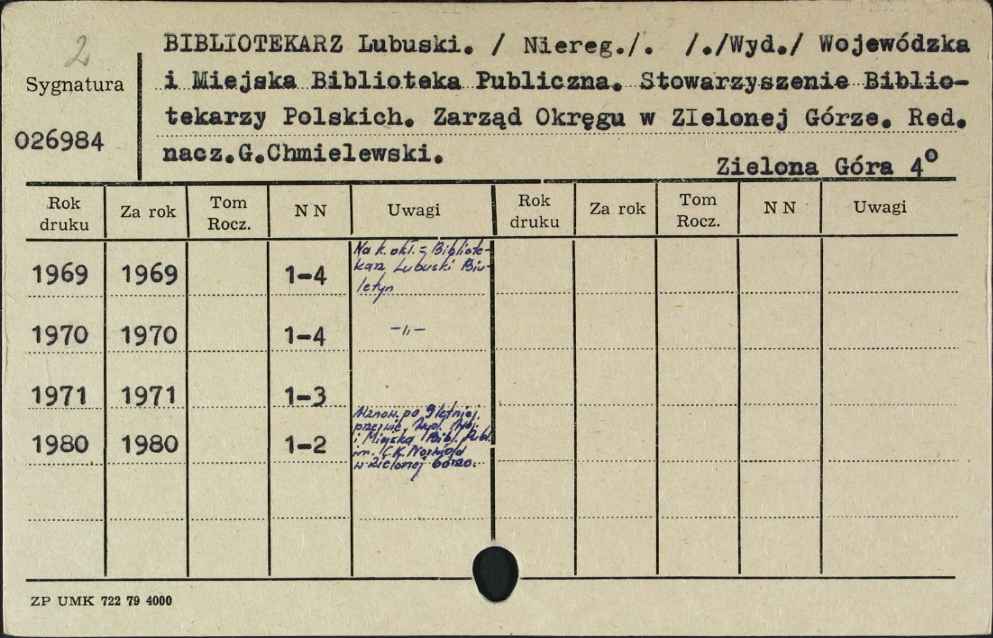 2
BIBLIOTEKARZ Lubuski. / Niereg./. /./Wyd./ Wojewódzka
Sygnatura
i Miejska Biblioteka Publiczna. Stowarzyszenie Biblio-
026984
tekarzy Polskich. Zarząd Okręgu w ZIelonej Górze. Red.
nacz.G.Chmielewski.
Zielona Góra 4°
Rok druku Za rok Tom Rocz. N N Uwagi Rok druku Za rok Tom Rocz. N N Uwagi
Na k. okł. = Bibliote-
1969 1969 1-4 karz Lubuski Biu-
letyn
1970 1970 1-4 -"-
1971 1971 1-3
Wznow. po 9 letniej
przerwie.
1980 1980 1-2 i Miejska Bibl. Publ.
im. C.K. Norwida
w Zielonej Górze.
ZP UMK 722 79 4000